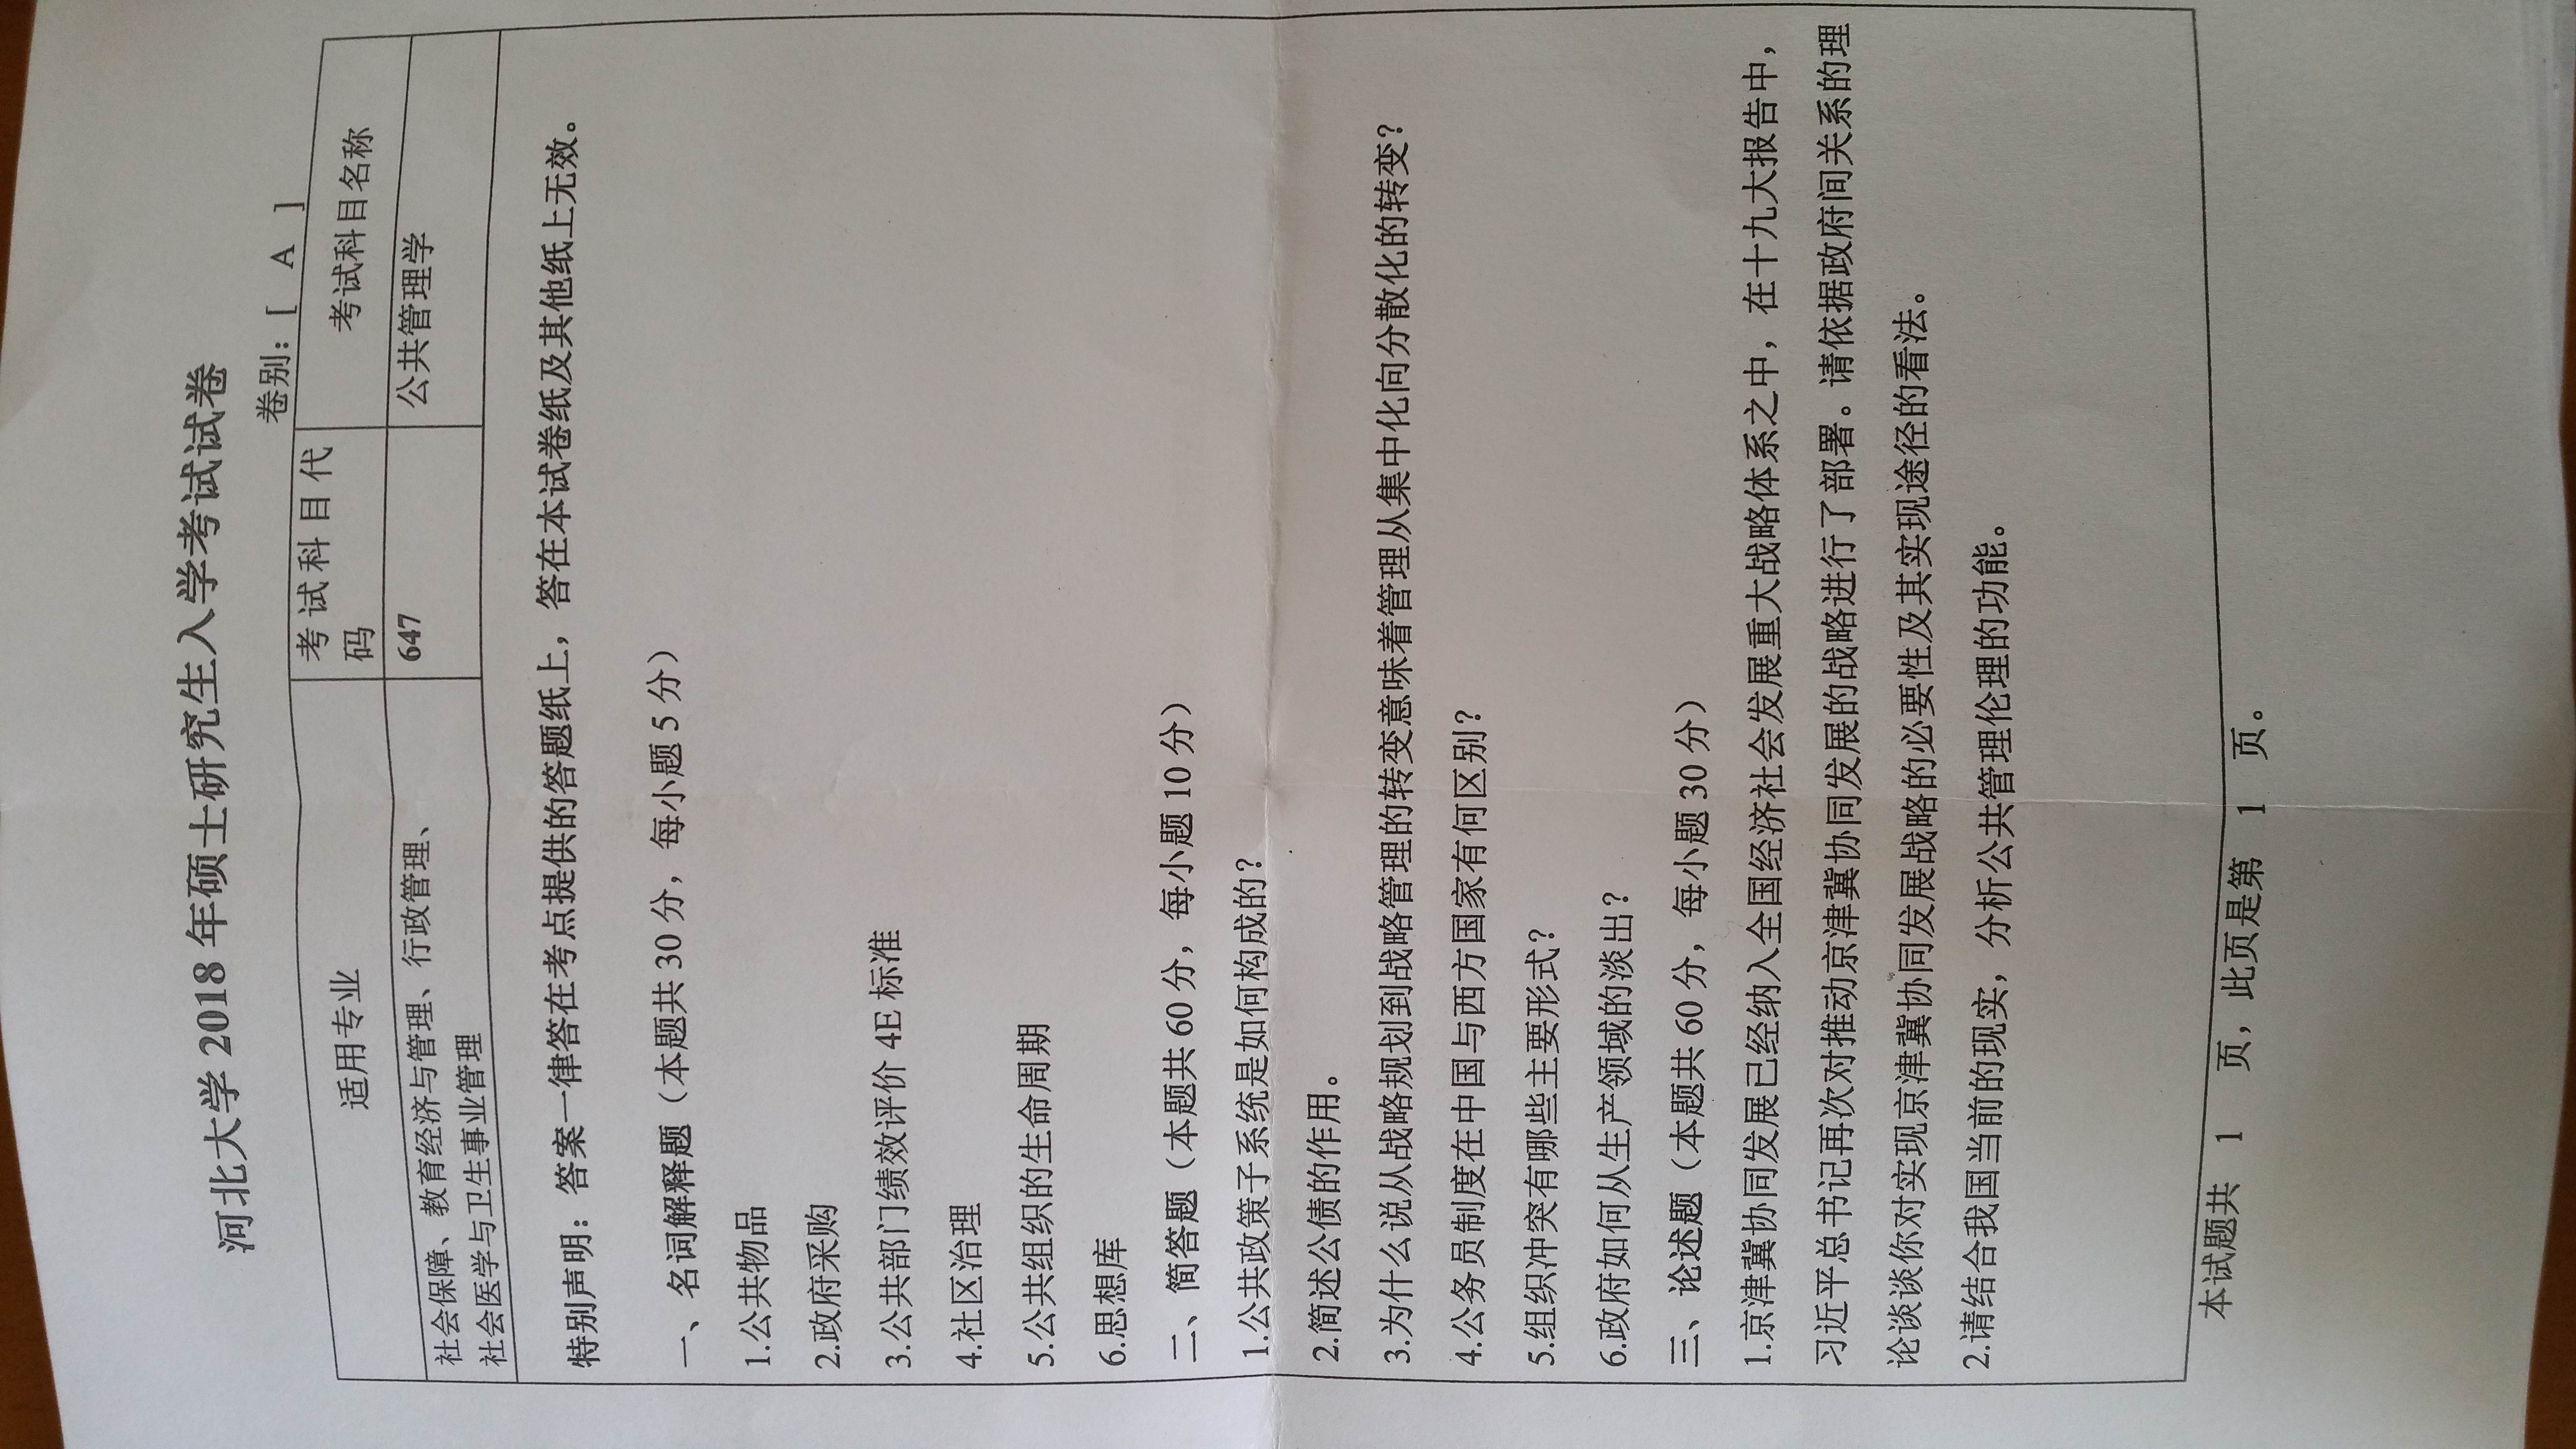 河北大学 2018 年硕士研究生入学考试试卷
卷别：[ A ]
适用专业 考试科目代 考试科目名称
码
社会保障、教育经济与管理、行政管理、 647 公共管理学
社会医学与卫生事业管理
特别声明：答案一律答在考点提供的答题纸上，答在本试卷纸及其他纸上无效。
一、名词解释题（本题共 30 分，每小题 5 分）
1.公共物品
2.政府采购
3.公共部门绩效评价 4E 标准
4.社区治理
5.公共组织的生命周期
6.思想库
二、简答题（本题共 60 分，每小题 10 分）
1.公共政策子系统是如何构成的？
2.简述公债的作用。
3.为什么说从战略规划到战略管理的转变意味着管理从集中化向分散化的转变？
4.公务员制度在中国与西方国家有何区别？
5.组织冲突有哪些主要形式？
6.政府如何从生产领域的淡出？
三、论述题（本题共 60 分，每小题 30 分）
1.京津冀协同发展已经纳入全国经济社会发展重大战略体系之中，在十九大报告中，
习近平总书记再次对推动京津冀协同发展的战略进行了部署。请依据政府间关系的理
论谈谈你对实现京津冀协同发展战略的必要性及其实现途径的看法。
2.请结合我国当前的现实，分析公共管理伦理的功能。
本试题共 1 页，此页是第 1 页。